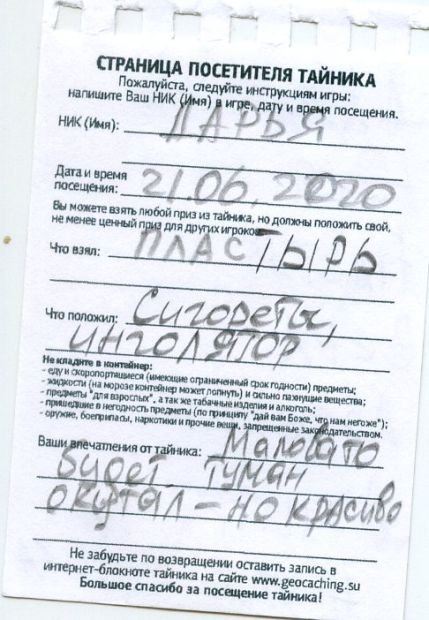 СТРАНИЦА ПОСЕТИТЕЛЯ ТАЙНИКА
Пожалуйста, следуйте инструкциям игры:
напишите Ваш НИК (Имя) в игре, дату и время посещения.
НИК (Имя): ДАРЬЯ
Дата и время
посещения: 21.06.2020
Вы можете взять любой приз из тайника, но должны положить свой,
не менее ценный приз для других игроков
Что взял: ПЛАСТЫРЬ
Что положил: Сигореты,
ИНГОЛЯТОР
Не кладите в контейнер:
- еду и скоропортящиеся (имеющие ограниченный срок годности) предметы;
- жидкости (на морозе контейнер может лопнуть) и сильно пахнущие вещества;
- предметы "для взрослых", а так же табачные изделия и алкоголь;
- пришедшие в негодность предметы (по принципу "дай вам Боже, что нам негоже");
- оружие, боеприпасы, наркотики и прочие вещи, запрещенные законодательством.
Ваши впечатления от тайника: Маловато
будет туман
окутал - но красиво
Не забудьте по возвращении оставить запись в
интернет-блокноте тайника на сайте www.geocaching.su
Большое спасибо за посещение тайника!